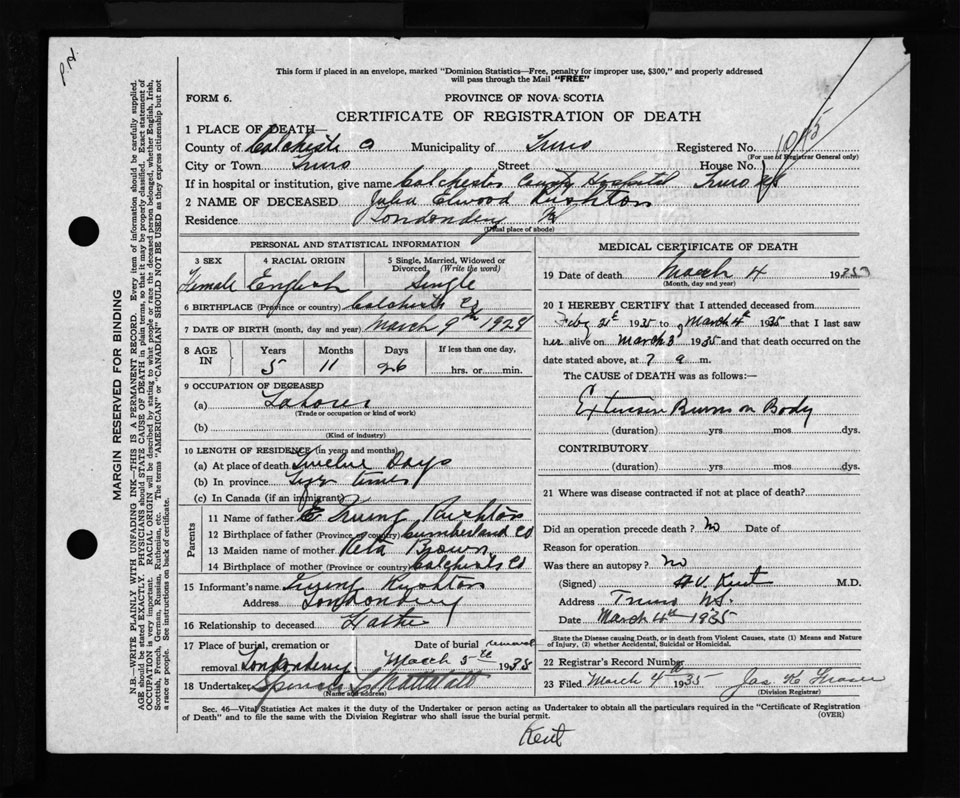 P.H.
This form if placed in an envelope, marked "Dominion Statistics—Free, penalty for improper use, $300," and properly addressed
will pass through the Mail "FREE"
FORM 6.
PROVINCE OF NOVA SCOTIA
CERTIFICATE OF REGISTRATION OF DEATH
1 PLACE OF DEATH—
County of Colchester Co Municipality of Truro Registered No.
(For use of Registrar General only)
City or Town Truro Street House No.
If in hospital or institution, give name Colchester County Hospital Truro NS
2 NAME OF DECEASED Julia Elwood Rushton
Residence Londonderry NS
(Usual place of abode)
PERSONAL AND STATISTICAL INFORMATION
3 SEX 4 RACIAL ORIGIN 5 Single, Married, Widowed or Divorced. (Write the word)
Female English Single
6 BIRTHPLACE (Province or country) Colchester Co
7 DATE OF BIRTH (month, day and year) March 9th 1929
8 AGE IN Years Months Days If less than one day,
5 11 26 hrs. or min.
9 OCCUPATION OF DECEASED
(a)
(Trade or occupation or kind of work)
(b)
(Kind of industry)
10 LENGTH OF RESIDENCE (in years and months)
(a) At place of death Twelve Days
(b) In province Life time
(c) In Canada (if an immigrant)
Parents
11 Name of father E Irving Rushton
12 Birthplace of father (Province or country) Cumberland Co
13 Maiden name of mother Reta Brown
14 Birthplace of mother (Province or country) Colchester Co
15 Informant's name Irving Rushton
Address Londonderry
16 Relationship to deceased Father
17 Place of burial, cremation or Date of burial removal
removal Londonderry March 5th 1935
18 Undertaker
(Name and address)
MEDICAL CERTIFICATE OF DEATH
19 Date of death March 4 1935
(Month, day and year)
20 I HEREBY CERTIFY that I attended deceased from
Feby 21st 1935 to March 4th 1935 that I last saw
her alive on March 3 1935 and that death occurred on the
date stated above, at 7 a m.
The CAUSE of DEATH was as follows:—
Extensive Burns on Body
(duration) yrs mos dys.
CONTRIBUTORY
(duration) yrs mos dys.
21 Where was disease contracted if not at place of death?
Did an operation precede death? No Date of
Reason for operation
Was there an autopsy? No
(Signed) H V. Kent M.D.
Address Truro NS.
Date March 4th 1935
State the Disease causing Death, or in death from Violent Causes, state (1) Means and Nature
of Injury, (2) whether Accidental, Suicidal or Homicidal.
22 Registrar's Record Number
23 Filed March 4th 1935 Jas. K Fraser
(Division Registrar)
Sec. 46—Vital Statistics Act makes it the duty of the Undertaker or person acting as Undertaker to obtain all the particulars required in the "Certificate of Registration
of Death" and to file the same with the Division Registrar who shall issue the burial permit. (OVER)
Kent
MARGIN RESERVED FOR BINDING
N.B.—WRITE PLAINLY WITH UNFADING INK—THIS IS A PERMANENT RECORD. Every item of information should be carefully supplied.
AGE should be stated EXACTLY. PHYSICIANS should STATE CAUSE OF DEATH in plain terms, so that it may be properly classified. Exact statement of
OCCUPATION is very important. RACIAL ORIGIN will be described by stating to what people or race the deceased person belonged, whether English, Irish,
Scottish, French, German, Russian, Ruthenian, etc. The terms "AMERICAN" or "CANADIAN" SHOULD NOT BE USED as they express citizenship but not
a race or people. See instructions on back of certificate.